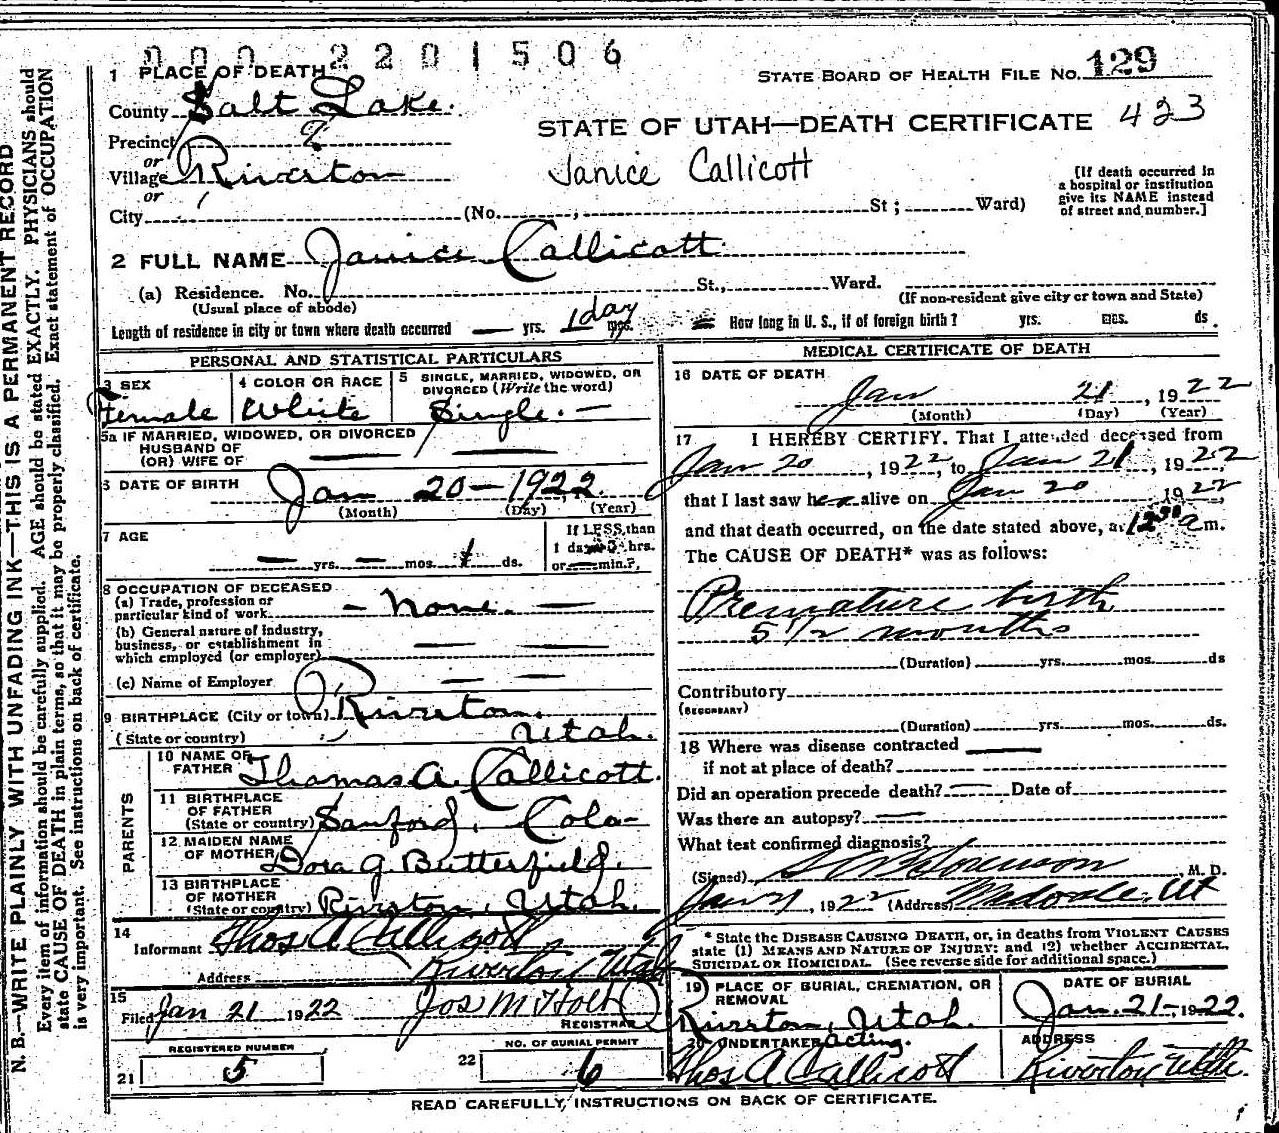 0002201506
1 PLACE OF DEATH
STATE BOARD OF HEALTH FILE No. 129
County Salt Lake.
STATE OF UTAH—DEATH CERTIFICATE 423
Precinct
or
Village Riverton
Janice Callicott
[If death occurred in
a hospital or institution
give its NAME instead
of street and number.]
or
City (No. , St ; Ward)
2 FULL NAME Janice Callicott
(a) Residence. No. St., Ward.
(Usual place of abode)
(If non-resident give city or town and State)
Length of residence in city or town where death occurred — yrs. 1 day mos. How long in U. S., if of foreign birth ? yrs. mos. ds.
PERSONAL AND STATISTICAL PARTICULARS
3 SEX
Female
4 COLOR OR RACE
White
5 SINGLE, MARRIED, WIDOWED, OR
DIVORCED (Write the word)
Single. —
5a IF MARRIED, WIDOWED, OR DIVORCED
HUSBAND OF
(OR) WIFE OF
6 DATE OF BIRTH
Jan 20 — 1922.
(Month) (Day) (Year)
7 AGE
— yrs. — mos. 1 ds.
If LESS than
1 day hrs.
or — min.?
8 OCCUPATION OF DECEASED
(a) Trade, profession or
particular kind of work — None. —
(b) General nature of industry,
business, or establishment in
which employed (or employer)
(c) Name of Employer
9 BIRTHPLACE (City or town) Riverton.
(State or country) Utah.
PARENTS
10 NAME OF
FATHER Thomas A. Callicott.
11 BIRTHPLACE
OF FATHER
(State or country) Sanford, Colo—
12 MAIDEN NAME
OF MOTHER Dora G. Butterfield.
13 BIRTHPLACE
OF MOTHER
(State or country) Riverton, Utah.
14
Informant Thos A Callicott
Address Riverton Utah
15
Filed Jan 21 1922 Jos M Holt
REGISTRAR
REGISTERED NUMBER
21 5
NO. OF BURIAL PERMIT
22 6
MEDICAL CERTIFICATE OF DEATH
16 DATE OF DEATH
Jan 21, 1922
(Month) (Day) (Year)
17 I HEREBY CERTIFY. That I attended deceased from
Jan 20, 1922, to Jan 21, 1922,
that I last saw her alive on Jan 20 1922,
and that death occurred, on the date stated above, at 12 30 a m.
The CAUSE OF DEATH* was as follows:
Premature birth
5 1/2 months
(Duration) yrs. mos. ds
Contributory
(SECONDARY)
(Duration) yrs. mos. ds.
18 Where was disease contracted —
if not at place of death?
Did an operation precede death? — Date of
Was there an autopsy? —
What test confirmed diagnosis?
(Signed) Sorenson, M. D.
Jan 21, 1922 (Address) Midvale. Ut
* State the DISEASE CAUSING DEATH, or, in deaths from VIOLENT CAUSES
state (1) MEANS AND NATURE OF INJURY; and (2) whether ACCIDENTAL,
SUICIDAL OR HOMICIDAL. (See reverse side for additional space.)
19 PLACE OF BURIAL, CREMATION, OR
REMOVAL
Riverton, Utah.
DATE OF BURIAL
Jan. 21-, 1922.
20 UNDERTAKER acting.
Thos A Callicott
ADDRESS
Riverton Utah.
READ CAREFULLY, INSTRUCTIONS ON BACK OF CERTIFICATE.
N. B.—WRITE PLAINLY WITH UNFADING INK—THIS IS A PERMANENT RECORD
Every item of information should be carefully supplied. AGE should be stated EXACTLY. PHYSICIANS should
state CAUSE OF DEATH in plain terms, so that it may be properly classified. Exact statement of OCCUPATION
is very important. See instructions on back of certificate.